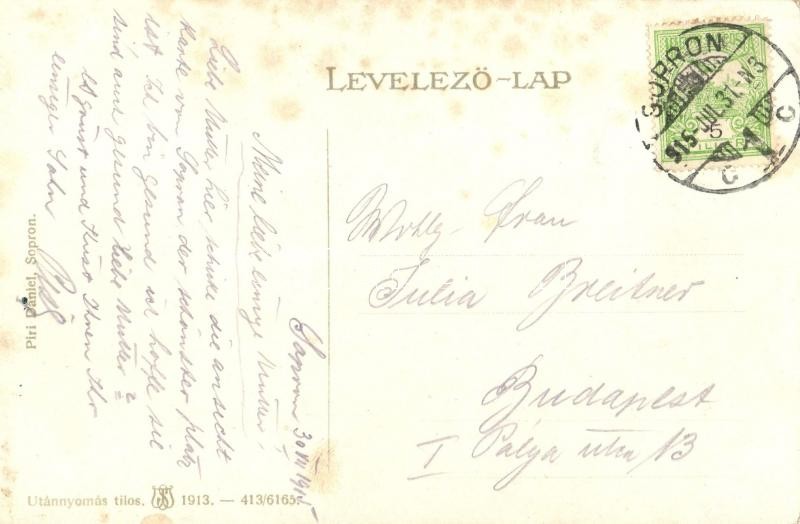 LEVELEZŐ-LAP
SOPRON
915 JUL. 31. N3
C C
5
Wohlg. Frau
Julia Breitner
Budapest
I Pálya utca 13
Sopron 30 VII 1915
Meine liebe einzige Mutter!
Liebe Mutter hier schike die ansicht
Karte von Sopron der schönster platz
ist. Ich bin gesund ich hoffe sie
sind auch gesund liebe Mutter
Es grüsst und küsst Ihnen Ihr
einziger Sohn
Piri Dániel, Sopron.
Utánnyomás tilos. 1913. — 413/6165.